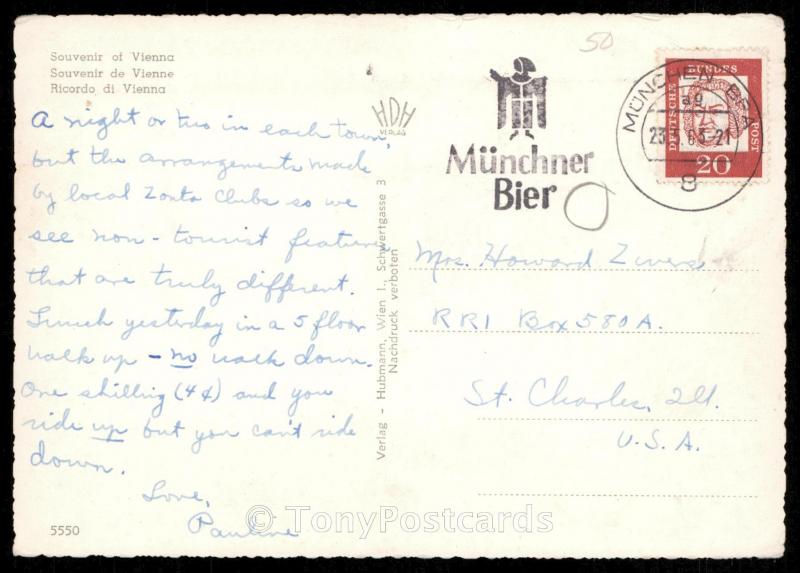 Souvenir of Vienna
Souvenir de Vienne
Ricordo di Vienna
A night or two in each town,
but the arrangements made
by local Zonta Clubs so we
see non-tourist features
that are truly different.
Lunch yesterday in a 5 floor
walk up - no walk down.
One shilling (4¢) and you
ride up but you can't ride
down.
Love,
Pauline
5550
HDH
VERLAG
Verlag - Hubmann, Wien I., Schwertgasse 3
Nachdruck verboten
50
Münchner
Bier
MÜNCHEN BPA
23. 63-21
8
DEUTSCHE BUNDESPOST
20
Mrs. Howard Zivers
RR1 Box 580A.
St. Charles, Ill.
U.S.A.
© TonyPostcards